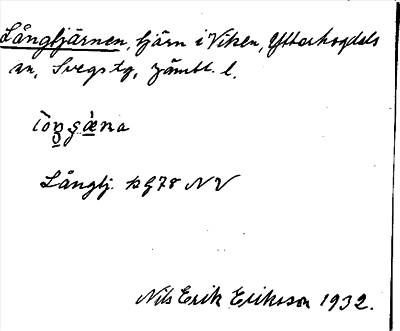 Långtjärnen, tjärn i Viken, Ytterhogdals
sn, Svegs tg, Jämtl. l.
Långtj. bl 78 NV
Nils Erik Eriksson 1932.